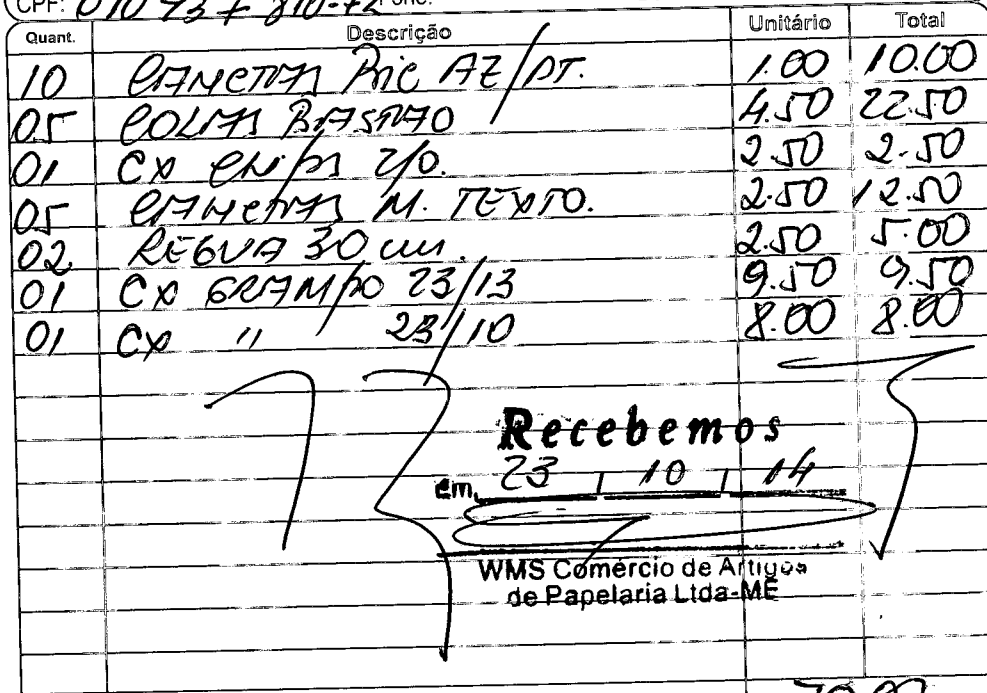 CPF: Fone:
Quant. Descrição Unitário Total
10 CANETAS BIC AZ/PT. 1.00 10.00
05 COLAS BASTÃO 4.50 22.50
01 CX CLIPS 2/0. 2.50 2.50
05 CANETAS M. TEXTO. 2.50 12.50
02 RÉGUA 30 cm. 2.50 5.00
01 CX GRAMPO 23/13 9.50 9.50
01 CX " 23/10 8.00 8.00
Recebemos
em, 23 / 10 / 14
WMS Comércio de Artigos
de Papelaria Ltda-ME